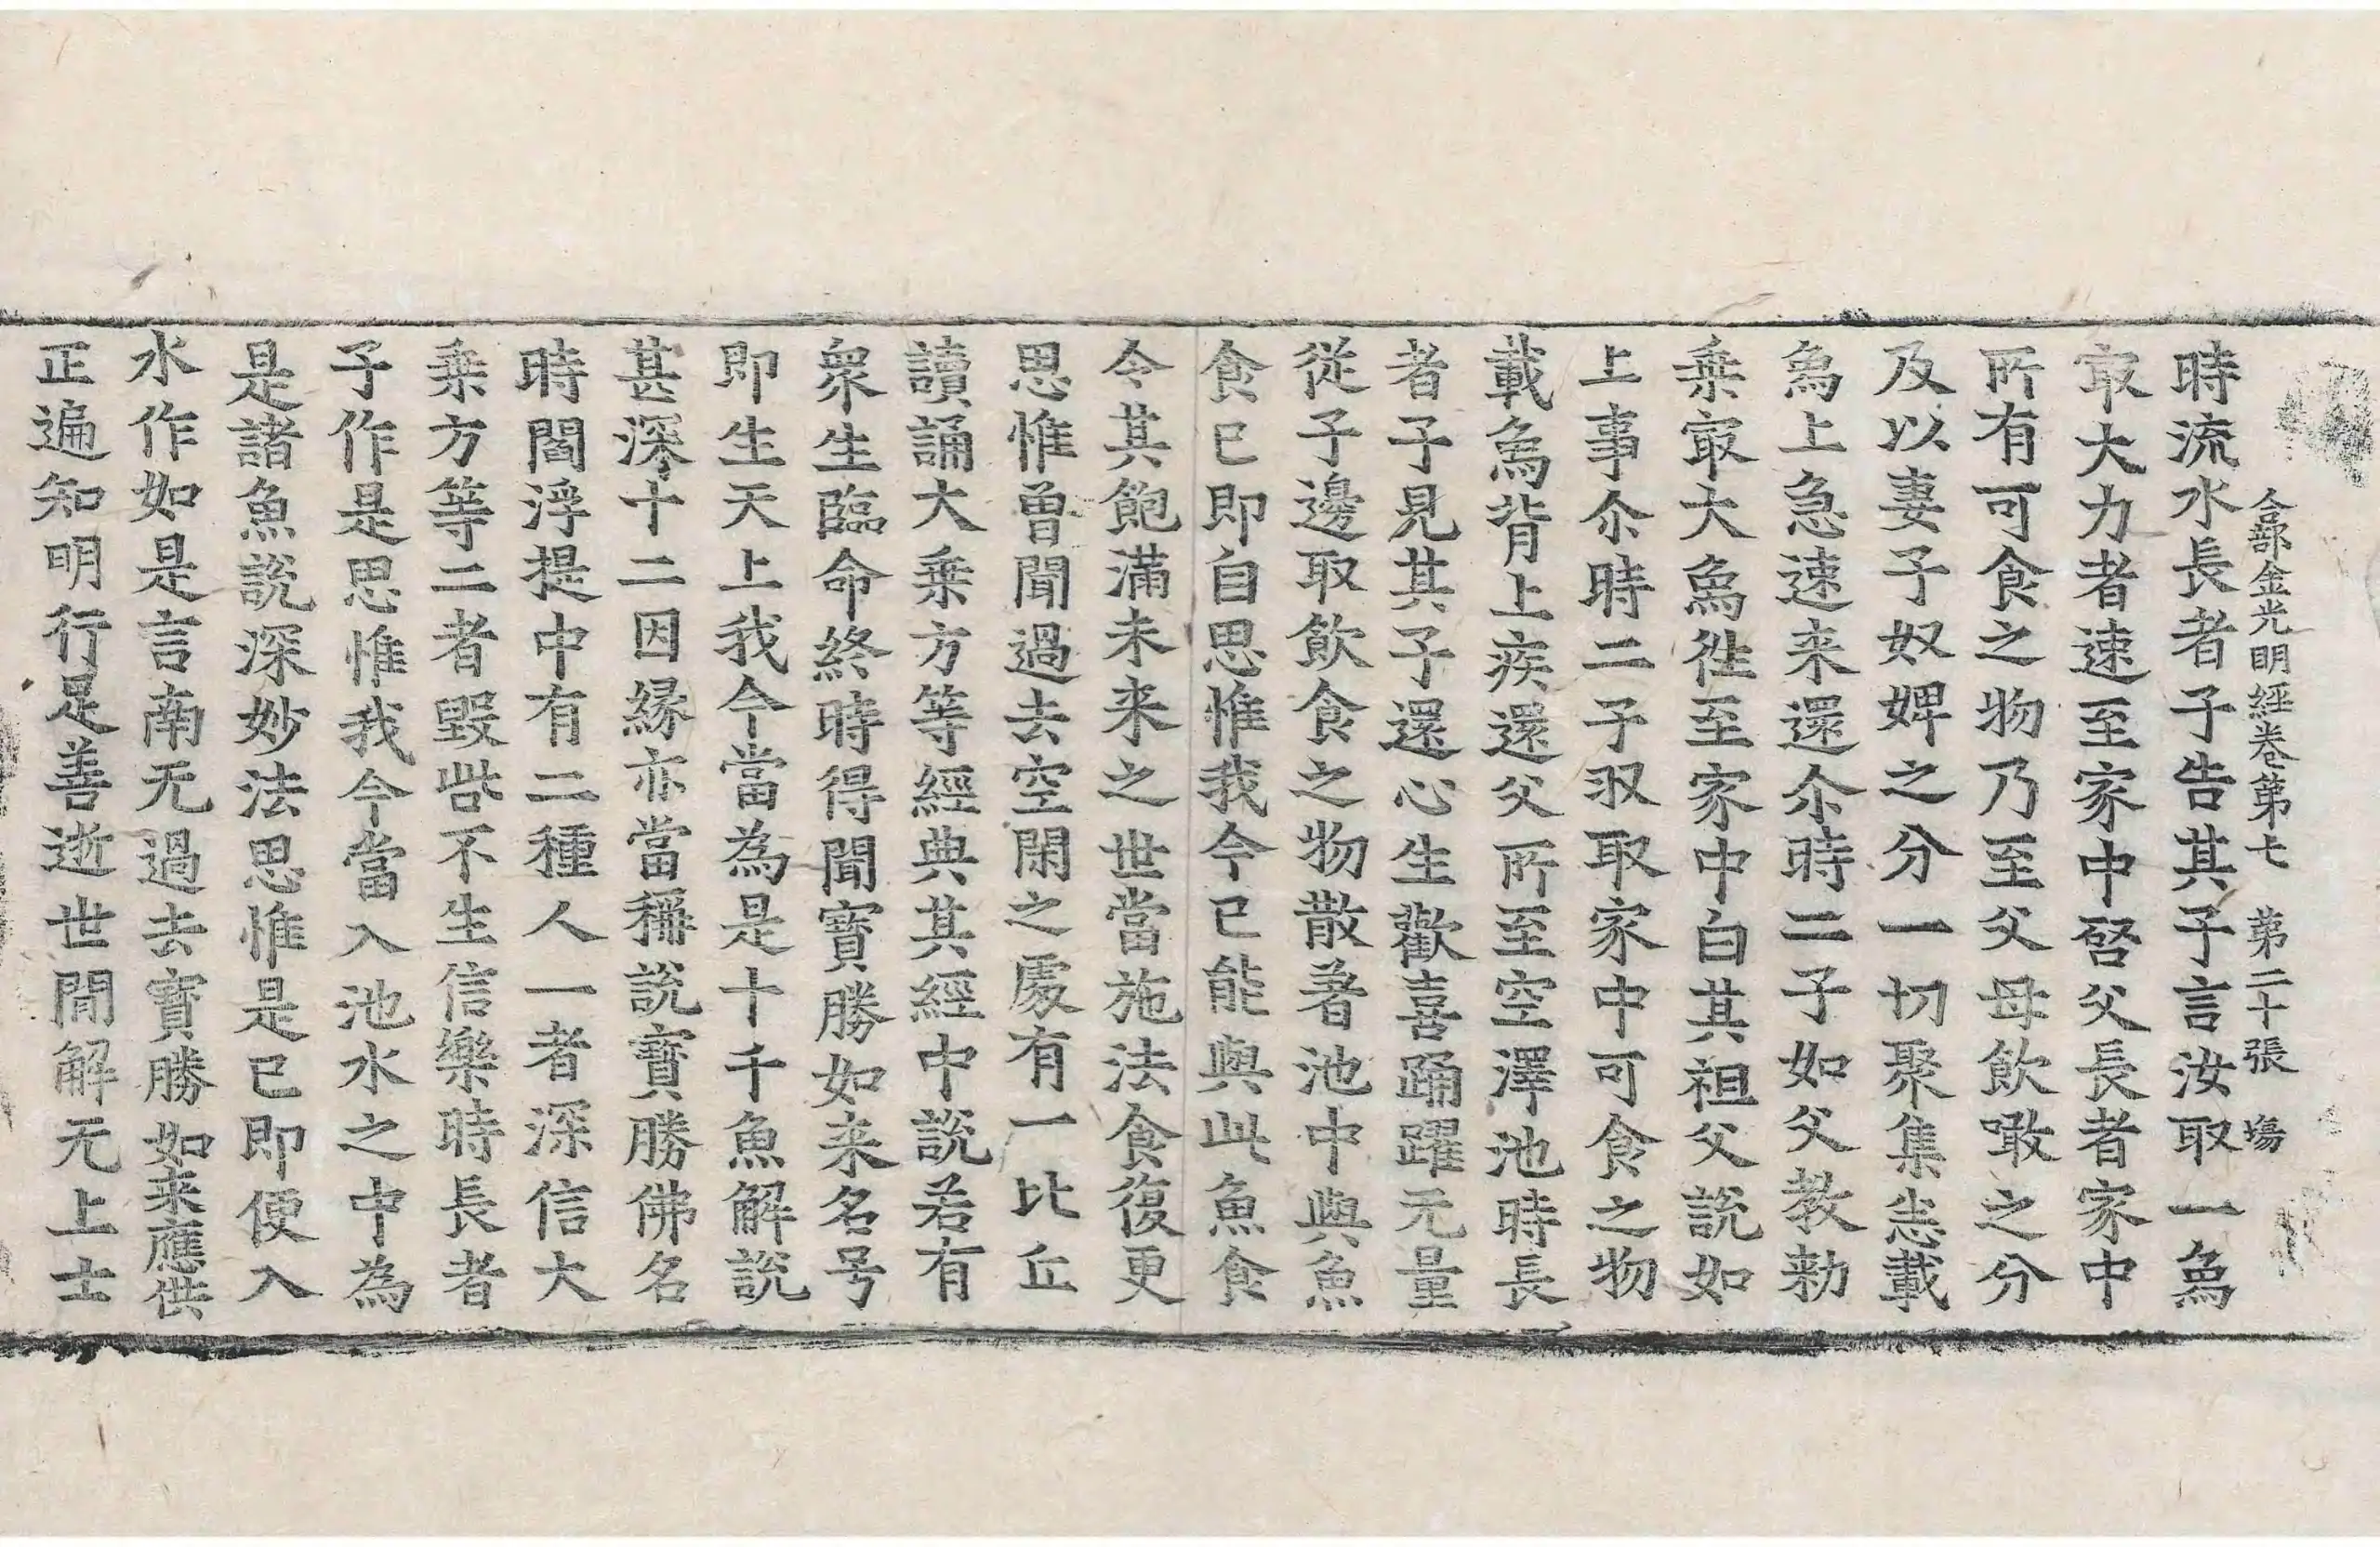 合部金光明經卷第七 第二十張 塲
時流水長者子告其子言汝取一爲
㝡大力者速至家中啓父長者家中
所有可食之物乃至父母飲噉之分
及以妻子奴婢之分一切聚集悉載
爲上急速来還尒時二子如父教勑
乗㝡大爲徃至家中白其祖父說如
上事尒時二子収取家中可食之物
載爲背上疾還父所至空澤池時長
者子見其子還心生歡喜踊躍无量
從子邊取飲食之物散著池中與魚
食已即自思惟我今已能與此魚食
令其飽滿未来之世當施法食復更
思惟曾聞過去空閑之處有一比丘
讀誦大乗方等經典其經中說若有
衆生臨命終時得聞寶勝如来名号
即生天上我今當為是十千魚解說
甚深十二因縁亦當稱說寶勝佛名
時閻浮提中有二種人一者深信大
乗方等二者毀呰不生信樂時長者
子作是思惟我今當入池水之中為
是諸魚說深妙法思惟是已即便入
水作如是言南无過去寶勝如来應供
正遍知明行足善逝世間解无上士